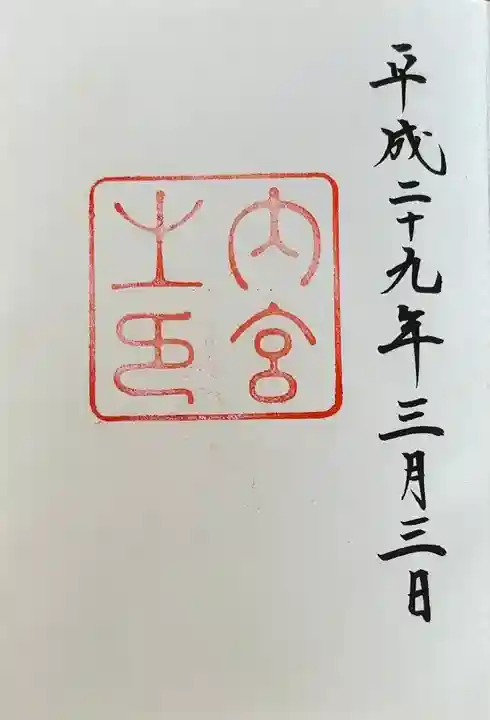 平成二十九年三月三日
内宮
之印